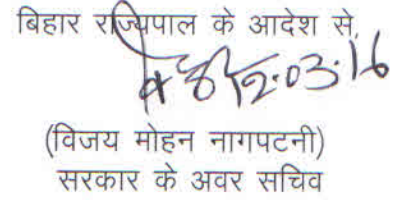 बिहार राज्यपाल के आदेश से,
2.03.16
(विजय मोहन नागपटनी)
सरकार के अवर सचिव